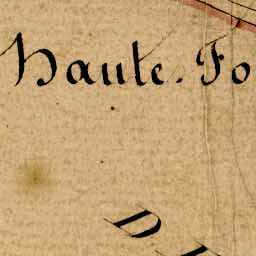 Haute. Fo
D